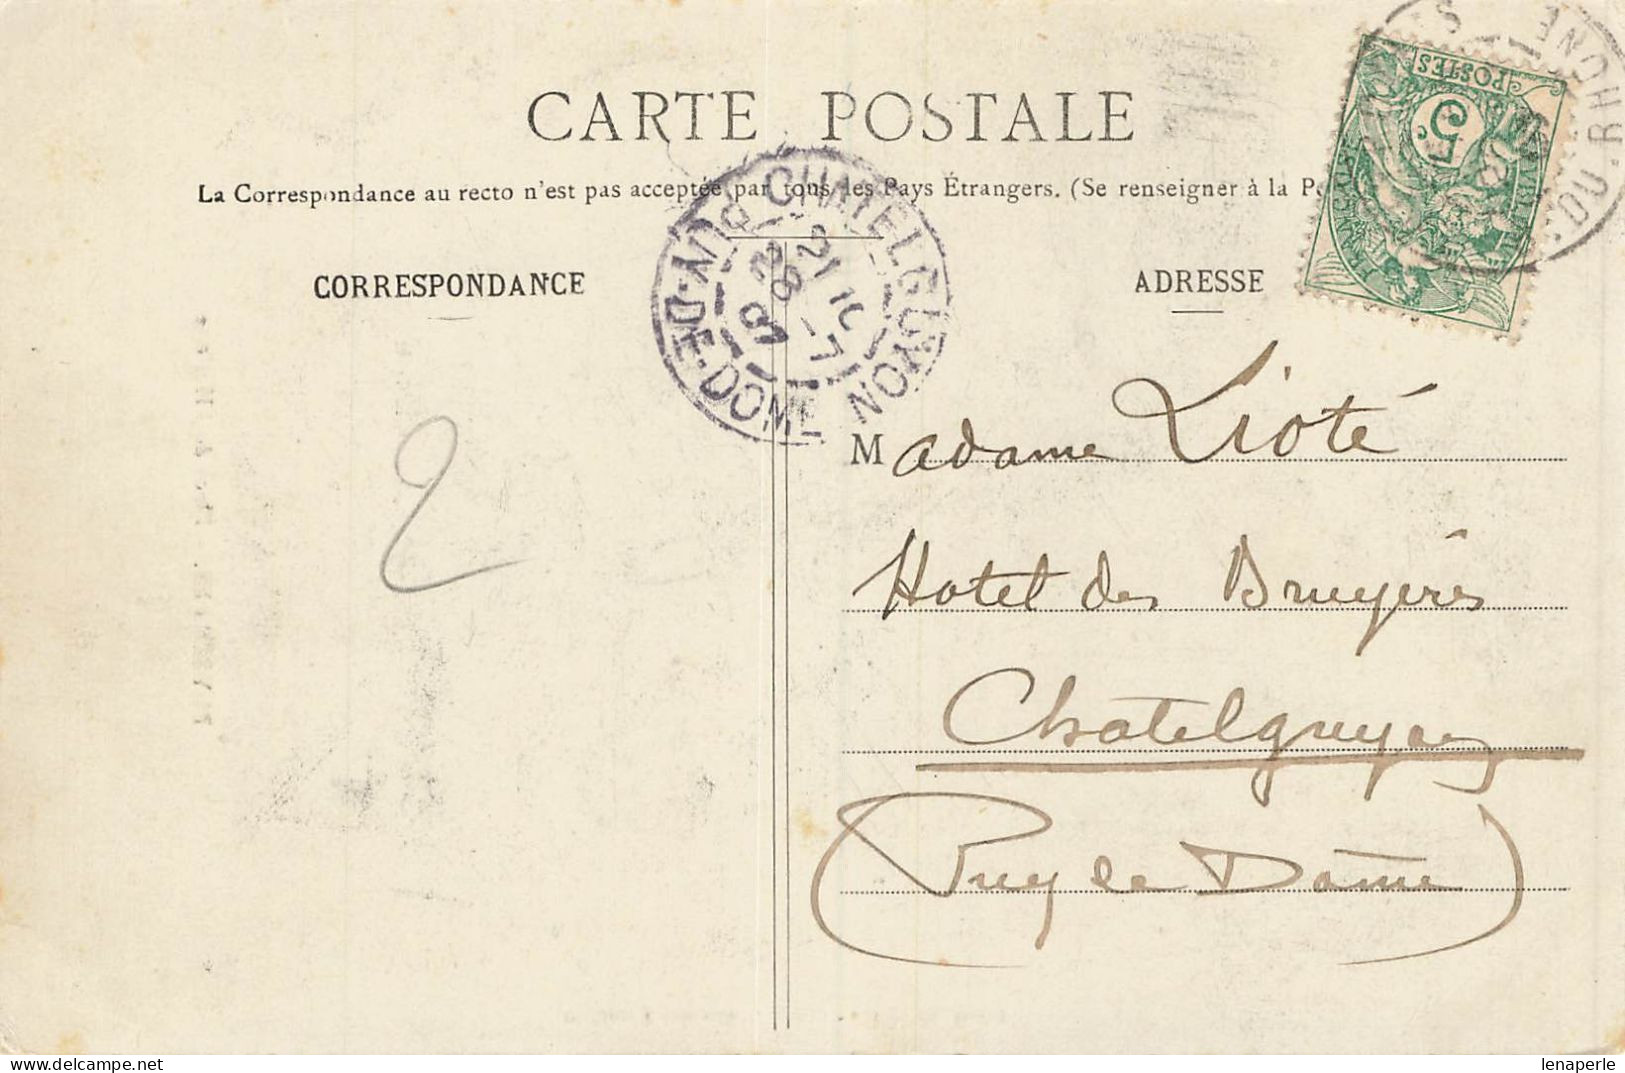 CARTE POSTALE
La Correspondance au recto n'est pas acceptée par tous les Pays Étrangers. (Se renseigner à la
CORRESPONDANCE
ADRESSE
CHATELGUYON
PUY-DE-DOME
POSTES
5 c
DU-RHONE
2
Madame Lioté
Hotel des Bruyères
Chatelguyon
(Puy de Dôme)
lenaperle